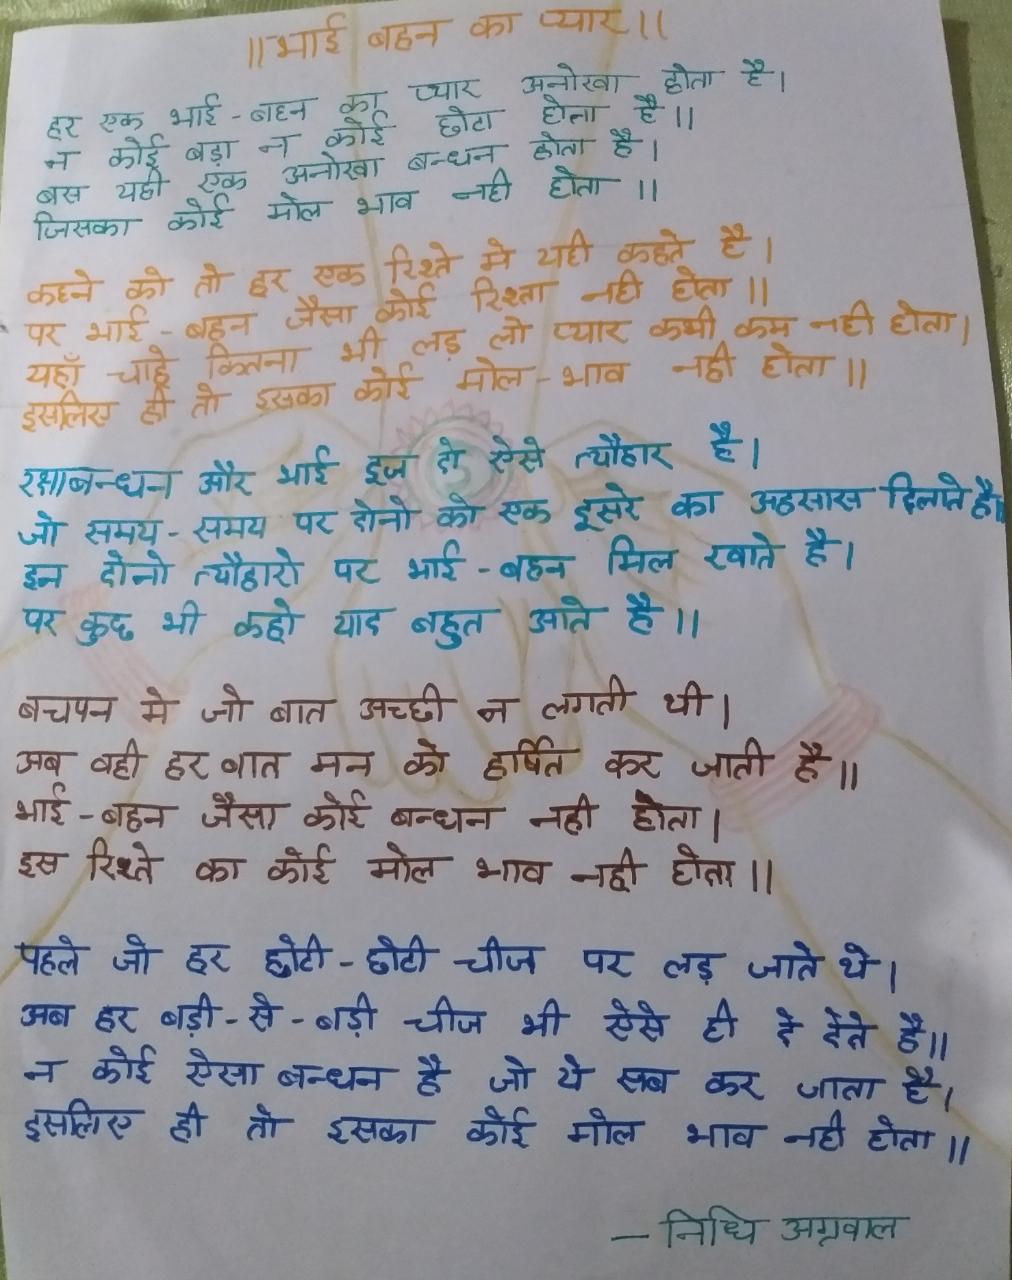 ॥ भाई बहन का प्यार ॥
हर एक भाई - बहन का प्यार अनोखा होता है।
न कोई बड़ा न कोई छोटा होता है॥
बस यही एक अनोखा बन्धन होता है।
जिसका कोई मोल भाव नही होता॥
कहने को तो हर एक रिश्ते मे यही कहते है।
पर भाई - बहन जैसा कोई रिश्ता नही होता॥
यहाँ चाहे कितना भी लड़ लो प्यार कभी कम नही होता।
इसलिए ही तो इसका कोई मोल - भाव नही होता॥
रक्षाबन्धन और भाई दूज दो ऐसे त्यौहार है।
जो समय - समय पर दोनो को एक दूसरे का अहसास दिलाते है॥
इन दोनो त्यौहारो पर भाई - बहन मिल खाते है।
पर कुछ भी कहो याद बहुत आते है॥
बचपन मे जो बात अच्छी न लगती थी।
अब वही हर बात मन को हर्षित कर जाती है॥
भाई - बहन जैसा कोई बन्धन नही होता।
इस रिश्ते का कोई मोल भाव नही होता॥
पहले जो हर छोटी - छोटी चीज पर लड़ जाते थे।
अब हर बड़ी - से - बड़ी चीज भी ऐसे ही दे देते है॥
न कोई ऐसा बन्धन है जो ये सब कर जाता है।
इसलिए ही तो इसका कोई मोल भाव नही होता॥
— निधि अग्रवाल